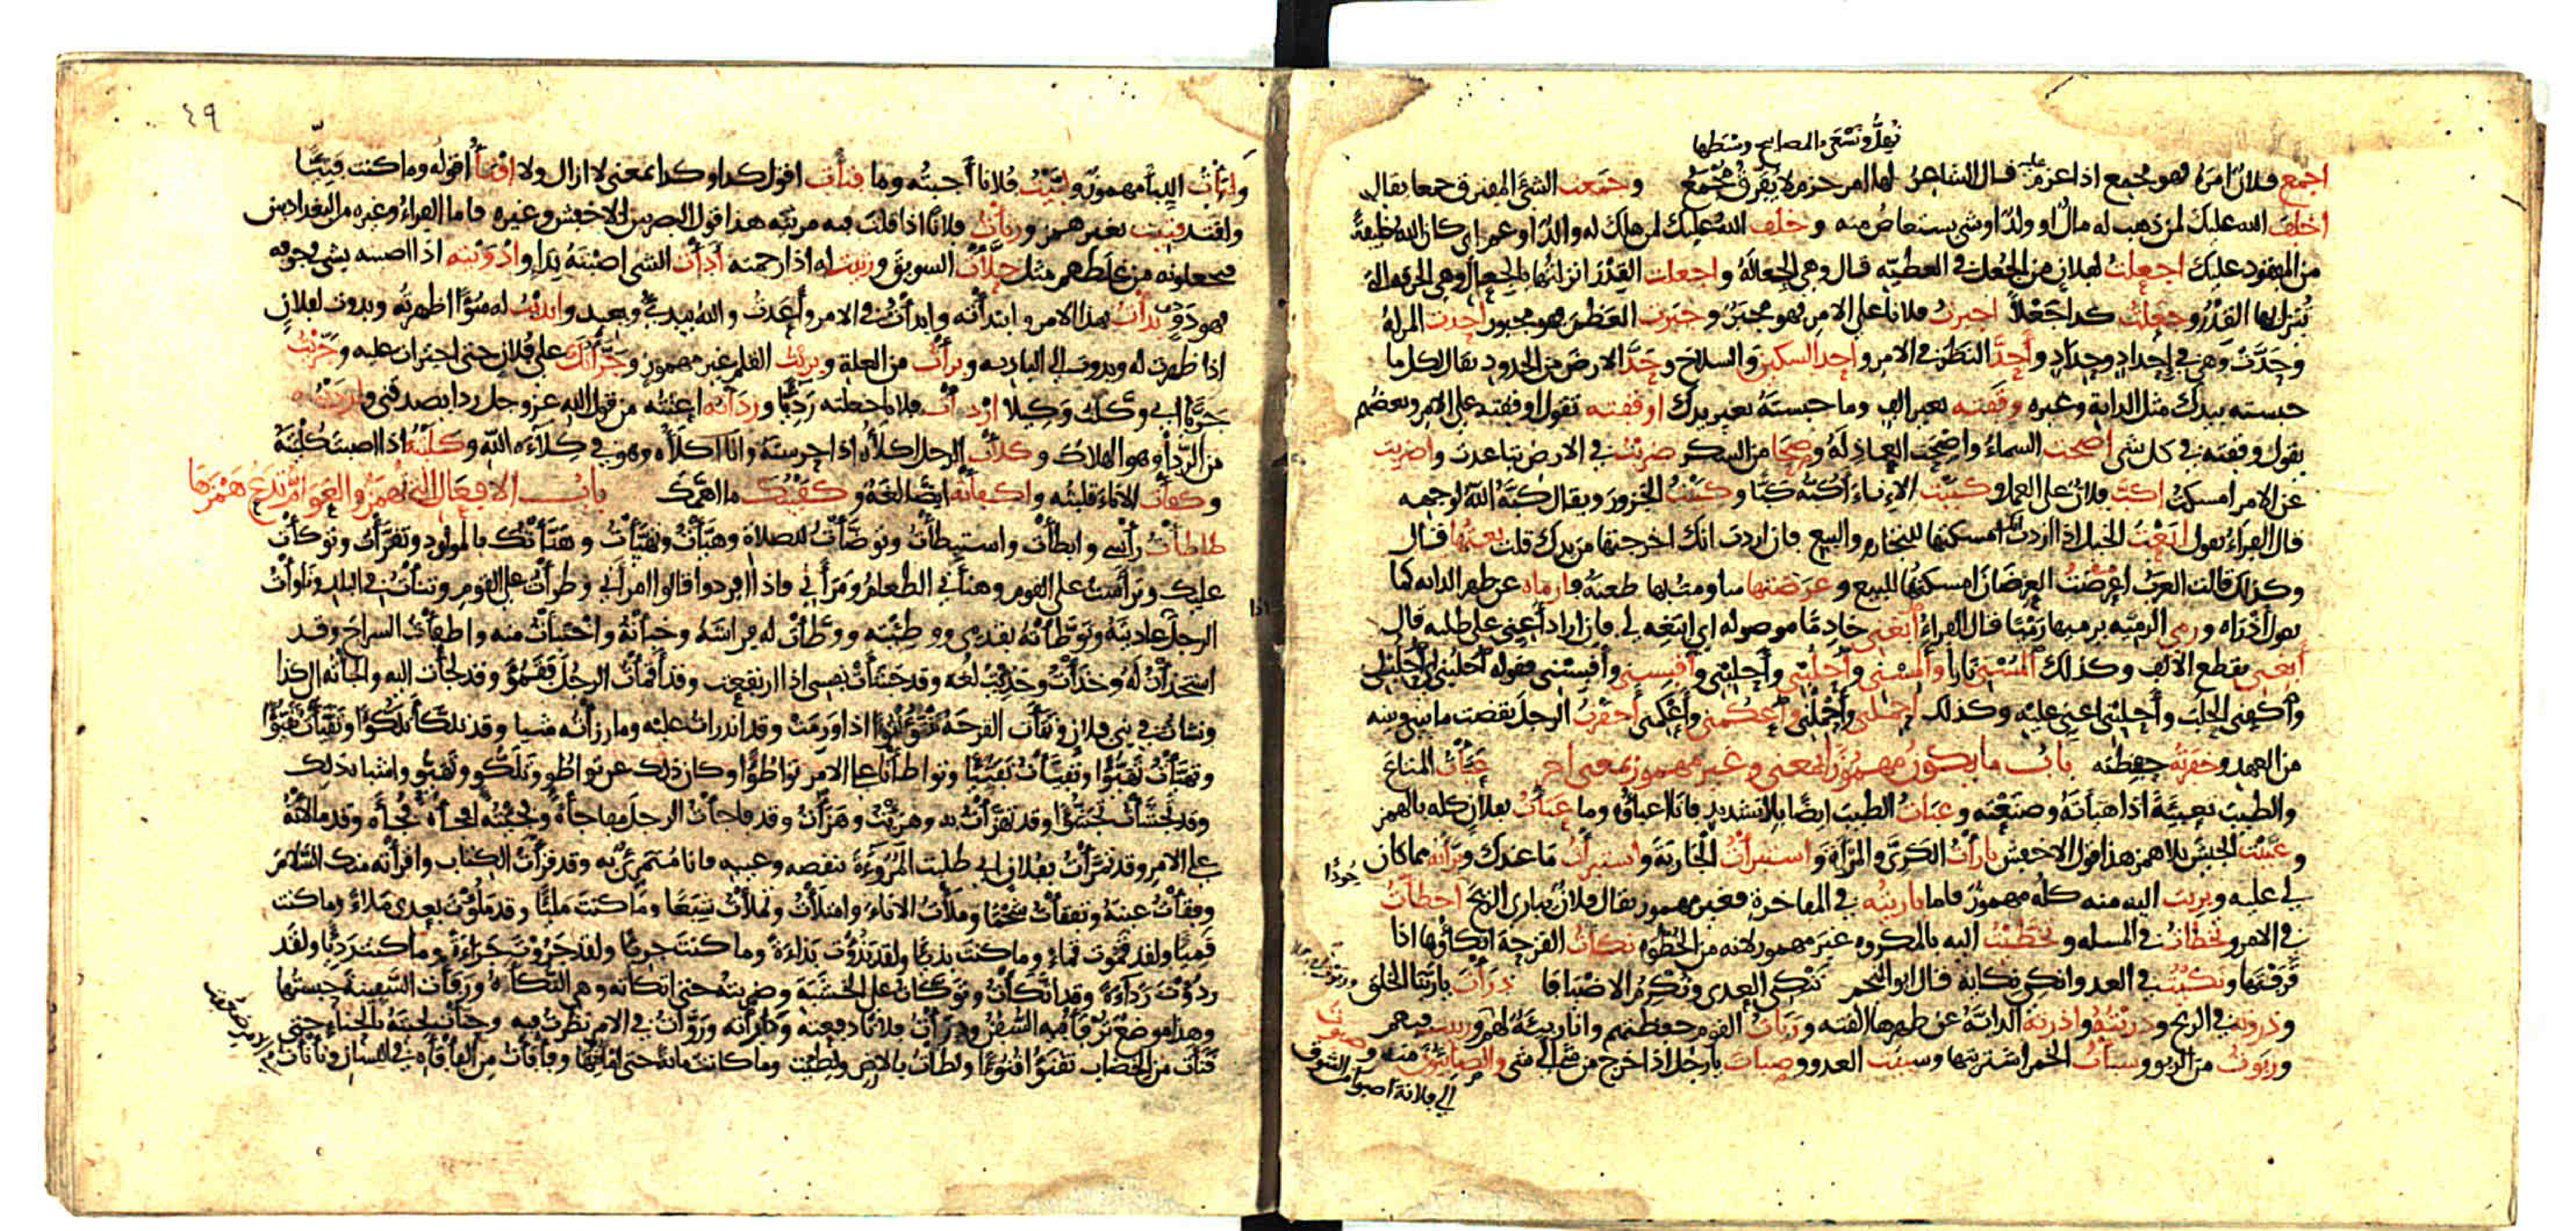 نهل ونسعى بالمصابيح وسطها
اجمع فلان امره فهو مجمع اذا عزم عليه قال الشاعر لها امر حزم لا يفرق مجمع وجمعت الشئ المفترق جمعا يقال
اخلف الله عليك لمن ذهب له مال او ولد او شي يستعاض منه وخلف الله عليك لمن هلك له والد او عم اي كان الله خليفة
من المفقود عليك اجعلت لفلان من الجعل في العطية قال وهي الجعالة واجعلت القدر انزلتها بالجعال وهي الخرقة التي
تنزل بها القدر وجعلت كذا جعلا اجبرت فلانا على الامر فهو مجبر وجبرت العظم فهو مجبور احدت المراة
وحدت وهي في احداد وحداد واحد النظر في الامر واحد السكين والسلاح وحد الارض من الحدود يقال لكل ما
حبسته بيدك مثل الدابة وغيره وقفته بغير الف وما حبسته بغير يدك اوقفته تقول اوقفته على الامر وبعضهم
يقول وقفته في كل شي اصحت السماء واصحت العاذلة وصحا من السكر ضربت في الارض تباعدت واضربت
عن الامر امسكت اكب فلان على العمل وكببت الاناء اكبه كبا وكببت الجزور ويقال كبه الله لوجهه
قال الفراء تقول ابعت الخيل اذا اردت انك امسكتها للتجارة والبيع فان اردت انك اخرجتها من يدك قلت بعتها قال
وكذلك قالت العرب اعرضت العرضان امسكتها للبيع وعرضتها ساومت بها طعنه فارماه عن ظهر الدابة كما
تقول اذراه ورمى الرمية يرميها رميا قال الفراء ابغني خادما موصولة اي ابتغه لي فان اراد اعني على طلبه قال
ابغني بقطع الالف وكذلك المسني نارا والمسني واحلبني واحلبني واقبسني واقبسني فقوله احلبني اي احلب لي
واكفني الحلب واحلبني اعني عليه وكذلك احملني واحملني واعكمني واعكمني اخفرت الرجل نقضت ما بيني وبينه
من العهد وخفرته حفظته باب ما يكون مهموزا بمعنى وغير مهموز بمعنى اخر عبأت المتاع
والطيب تعبئة اذا هيأته وصنعته وعبأت الطيب ايضا بلا تشديد فانا اعبأه وما عبأت بفلان كله بالهمز
وعبيت الجيش بلا همز هذا قول الاخفش بارأت الكري والمراة واستبرأت الجارية واستبرأت ما عندك وبرأته مما كان
لي عليه وبريت اليه منه كله مهموز فاما باريته في المفاخرة فغير مهموز يقال فلان يباري الريح اخطأت
في الامر وتخطأت في المسئلة وتخطيت اليه بالمكروه غير مهموز لانه من الخطوة نكأت القرحة انكأها اذا
قرفتها ونكيت في العدو انكي نكاية قال ابو النجم تنكي العدى وتكرم الاضيافا ذرأت يا ربنا الخلق
وذروته في الريح وذريته واذرته الدابة عن ظهرها القته وربأت القوم حفظتهم وانا ربيئة لهم وربيت فيهم
وربوت من الربو وسبأت الخمر اشتريتها وسبيت العدو وصبأت يا رجل اذا خرج من شي الى شي والصابئون منه وصبوت
الى فلانة اصبو من الشوق
٤٩
وابأت اليبأ مهموز ولبيت فلانا اجبته وما فتأت اقول كذا وكذا بمعنى لا ازال ولا افتأ اقوله وما كنت فتيا
ولقد فتيت بغير همز ورثأت فلانا اذا قلت فيه مرثية هذا قول البصريين الاخفش وغيره فاما الفراء وغيره من البغداديين
فيجعلونه من غلطهم مثل حلأت السويق ورثيت له اذا رحمته ادأت الشي اصبته بداء وادويته اذا اصبته بشي في جوفه
فهو دوي بدأت بهذا الامر وابتدأته وابدأت في الامر واعدت والله يبدئ ويعيد وابديت له سوءا اظهرته وبدوت لفلان
اذا ظهرت له وبدوت الى البادية وبرأت من العلة وبريت القلم غير مهموز وجرأتك على فلان حتى اجترأت عليه وجريت
جريا اي وكلت وكيلا اردأت فلانا جعلته رديئا وردأته اعنته من قول الله عز وجل ردا يصدقني وارديته
من الردى وهو الهلاك وكلأت الرجل اكلأه اذا حرسته وانا اكلأه وهو في كلاءة الله وكليته اذا اصبت كليته
وكفأت الاناء قلبته واكفأته ايضا لغة وكفيتك ما اهمك باب الافعال التي تهمز والعوام تدع همزها
طأطأت رأسي وابطأت واستبطأت وتوضأت للصلاة وهيأت وتهيأت وهنأتك بالمولود وتقرأت وتوكأت
عليك وترأست على القوم وهنأني الطعام ومرأني فاذا افردوا قالوا امرأني وطرأت على القوم ونتأت في البلد وناوأت
الرجل عاديته وتوطأته بقدمي ووطئته ووطأت له فراشه وخبأته واختبأت منه واطفأت السراج وقد
استخذأت له وخذأت وخذيت لغة وقد جشأت نفسي اذا ارتفعت وقد اقمأت الرجل فقمؤ وقد لجأت اليه والجأته الى كذا
ونشأت في بني فلان ونتأت القرحة تنتؤ نتوءا اذا ورمت وقد اندرأت عليه وما رزأته شيا وقد تلكأ تلكؤا وتقيأت تقيؤا
وتهيأت تهيؤا وتفيأت تفيئا وتواطأنا على الامر تواطؤا وكان ذلك عن تواطؤ وتلكؤ وتهيؤ واشباه ذلك
وقد تجشأت تجشؤا وقد تهزأت به وهزئت وهزأت وقد فاجأت الرجل مفاجأة وفجئته افجأه فجأة وقد مالأته
على الامر وقد تمرأت بفلان اي طلبت المروءة بنقصه وعيبه فانا متمرئ به وقد قرأت الكتاب واقرأته منك السلام
وفقأت عينه وتفقأت شحما وملأت الاناء وامتلأت وتملأت شبعا وما كنت مليا وقد ملؤت بعدي ملاءة وما كنت
قميا ولقد قمؤت قماءة وما كنت بذيا ولقد بذؤت بذاءة وما كنت جريا ولقد جرؤت جراءة وما كنت رديا ولقد
ردؤت رداءة وقد اتكأت وتوكأت على الخشبة وضربته حتى اتكأته وهي التكأة ورفأت السفينة حبستها
وهذا موضع ترفأ فيه السفن ودرأت فلانا دفعته ودارأته وروأت في الامر نظرت فيه وحنأت لحيته بالحناء حتى
قنأت من الخضاب تقنؤ قنوءا ولطأت بالارض ولطيت